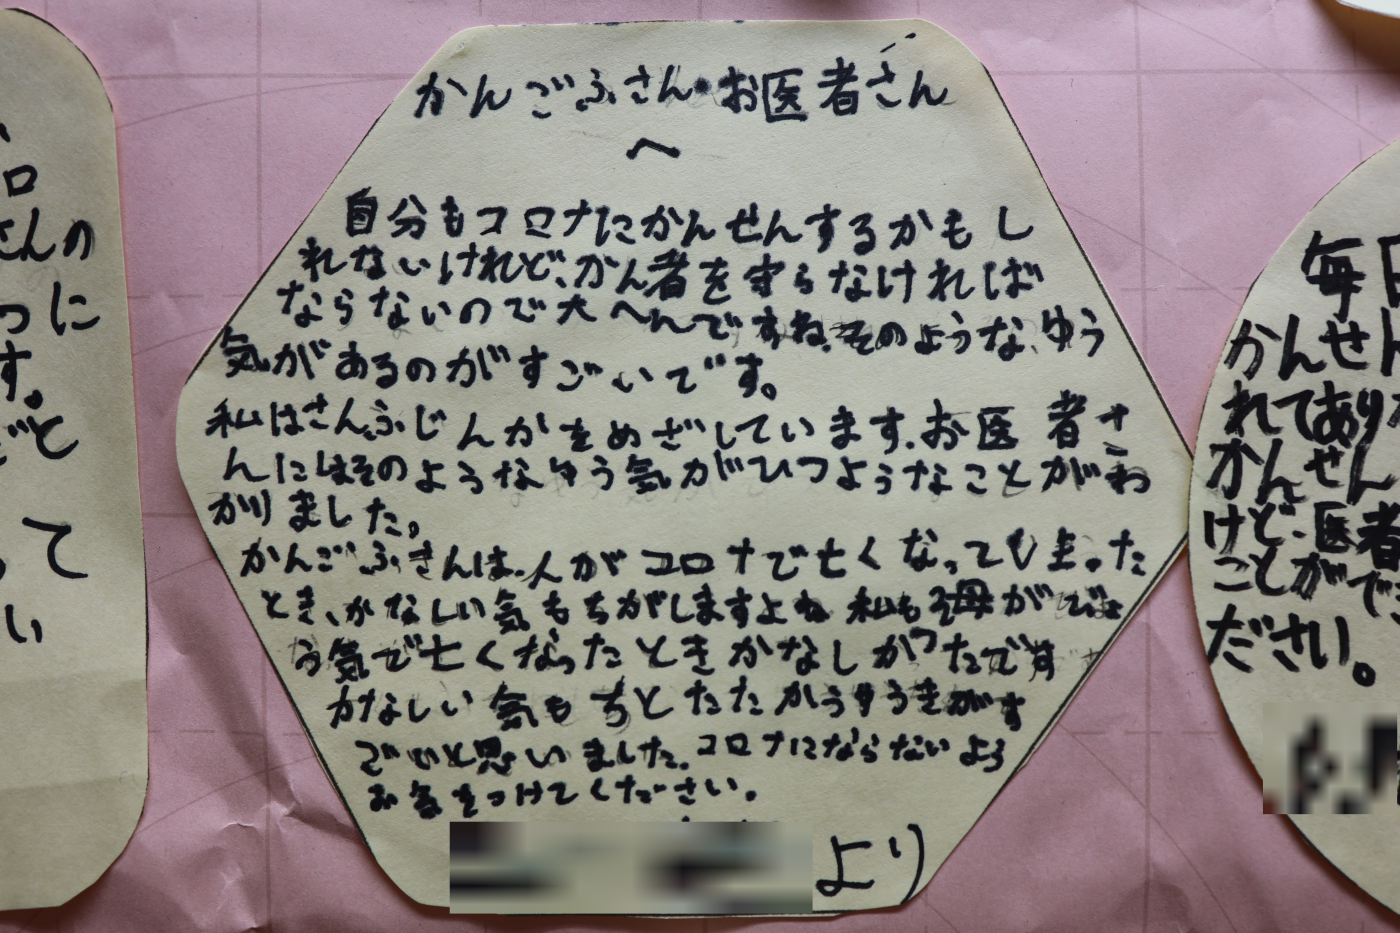 かんごふさん・お医者さん
へ
自分もコロナにかんせんするかもし
れないけれど、かん者を守らなければ
ならないので大へんですね。そのようなゆう
気があるのがすごいです。
私はさんふじんかをめざしています。お医者さ
んにはそのようなゆう気がひつようなことがわ
かりました。
かんごふさんは、人がコロナで亡くなってしまった
とき、かなしい気もちがしますよね。私もそ母がびょ
う気で亡くなったときかなしかったです
かなしい気もちとたたかうゆうきがす
ごいと思いました。コロナにならないよう
お気をつけてください。
より
ロ
さんの
つに
す。
ごと
て
い
毎日
かんせん
れてあり
かんせん
けど、医者
ことがで
ださい。